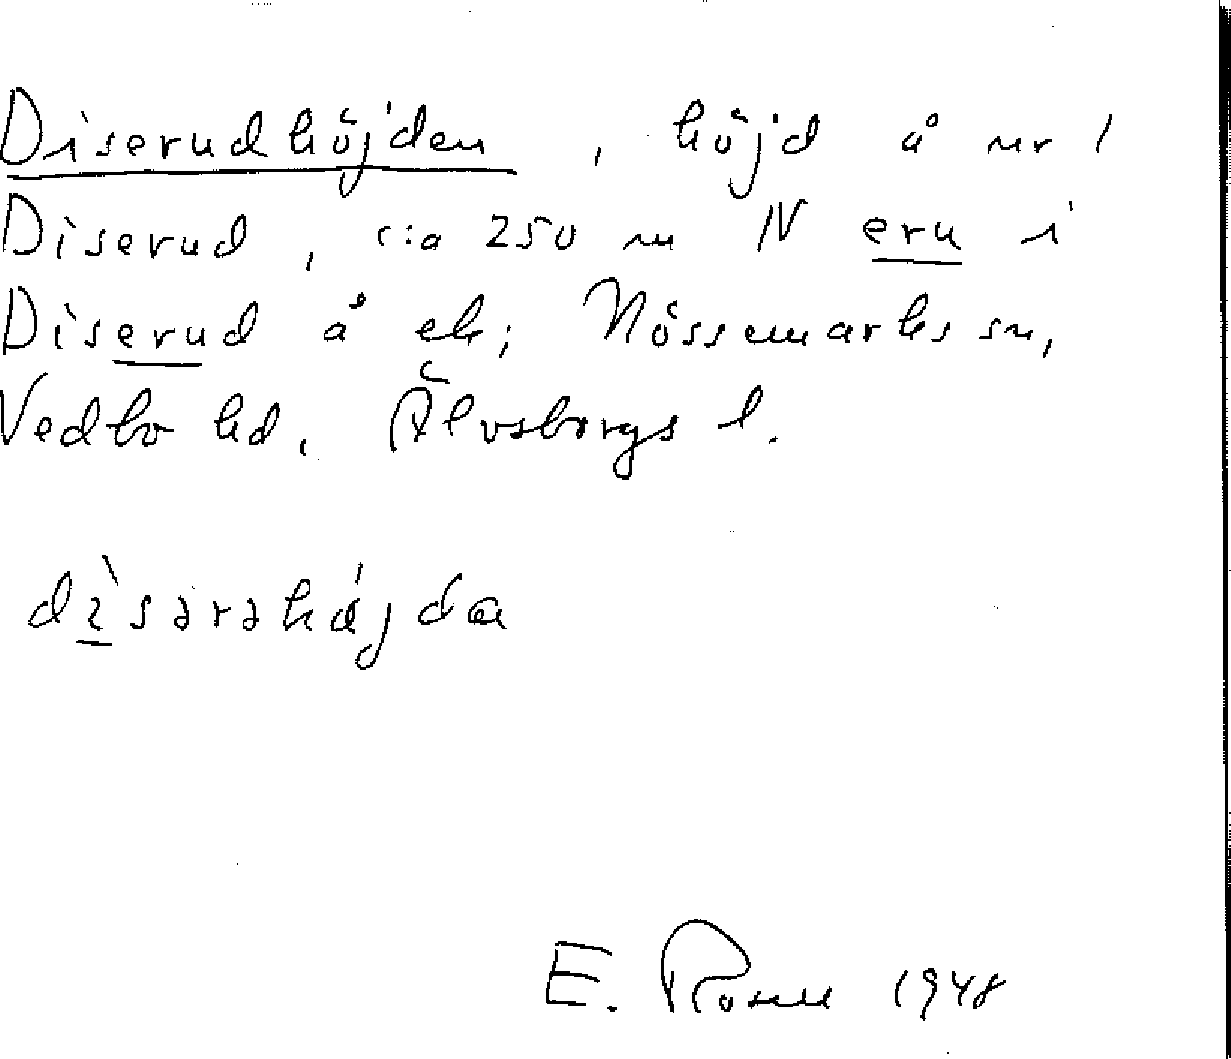 Diserudhöjden, höjd å nr 1
Diserud, c:a 250 m N eru i
Diserud å ek; Nössemarks sn,
Vedbo hd, Älvsborgs l.
E. 1948